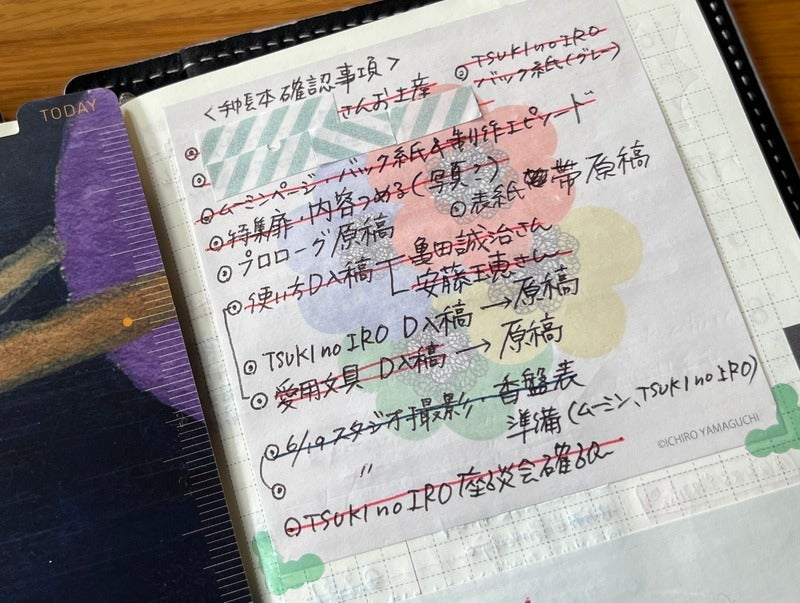 TODAY
<手帳本確認事項>
TSUKI no IRO
バック紙(グレー)
さんお土産
ムーミンページ・バック紙&制作エピソード
特集扉・内容つめる(写真?)
表紙 帯原稿
プロローグ原稿
使い方D入稿 亀田誠治さん
安藤 恵さん
TSUKI no IRO D入稿→原稿
愛用文具 D入稿→原稿
6/19スタジオ撮影・香盤表
〃 準備(ムーミン、TSUKI no IRO)
TSUKI no IRO 座談会確認
©ICHIRO YAMAGUCHI